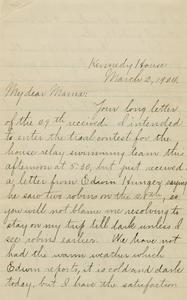 Kennedy House
March 2, 1904.
My dear Mama:
Your long letter
of the 29th received. I intended
to enter the trial contest for the
house relay swimming team this
afternoon at 5:30, but just received
a letter from Edwin saying
he saw two robins on the so
you will not blame me resolving to
stay on my trip till dark unless I
see robins earlier. We have not
had the warm weather which
Edwin reports, it is cold and dark
today, but I have the satisfaction